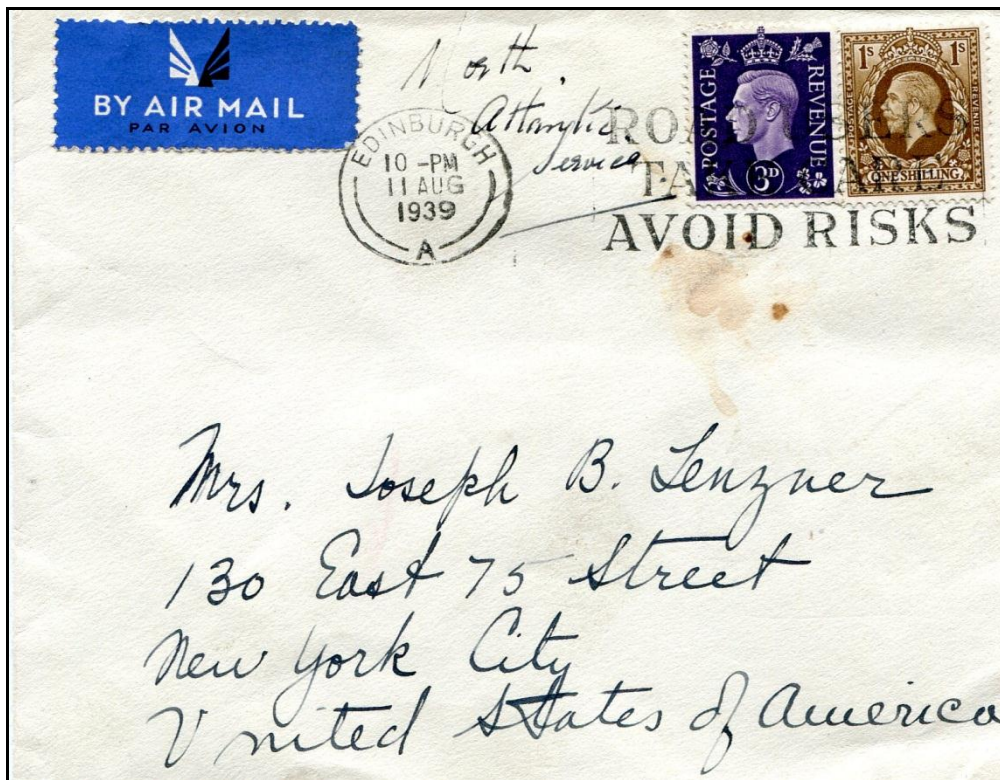 BY AIR MAIL
PAR AVION
North
Atlantic
Service
EDINBURGH
10 -PM
11 AUG
1939
A
ROAD USERS
TAKE CARE
AVOID RISKS
POSTAGE
REVENUE
3D
1S
1S
POSTAGE
REVENUE
ONE SHILLING
Mrs. Joseph B. Lenzner
130 East 75 Street
New York City
United States of America